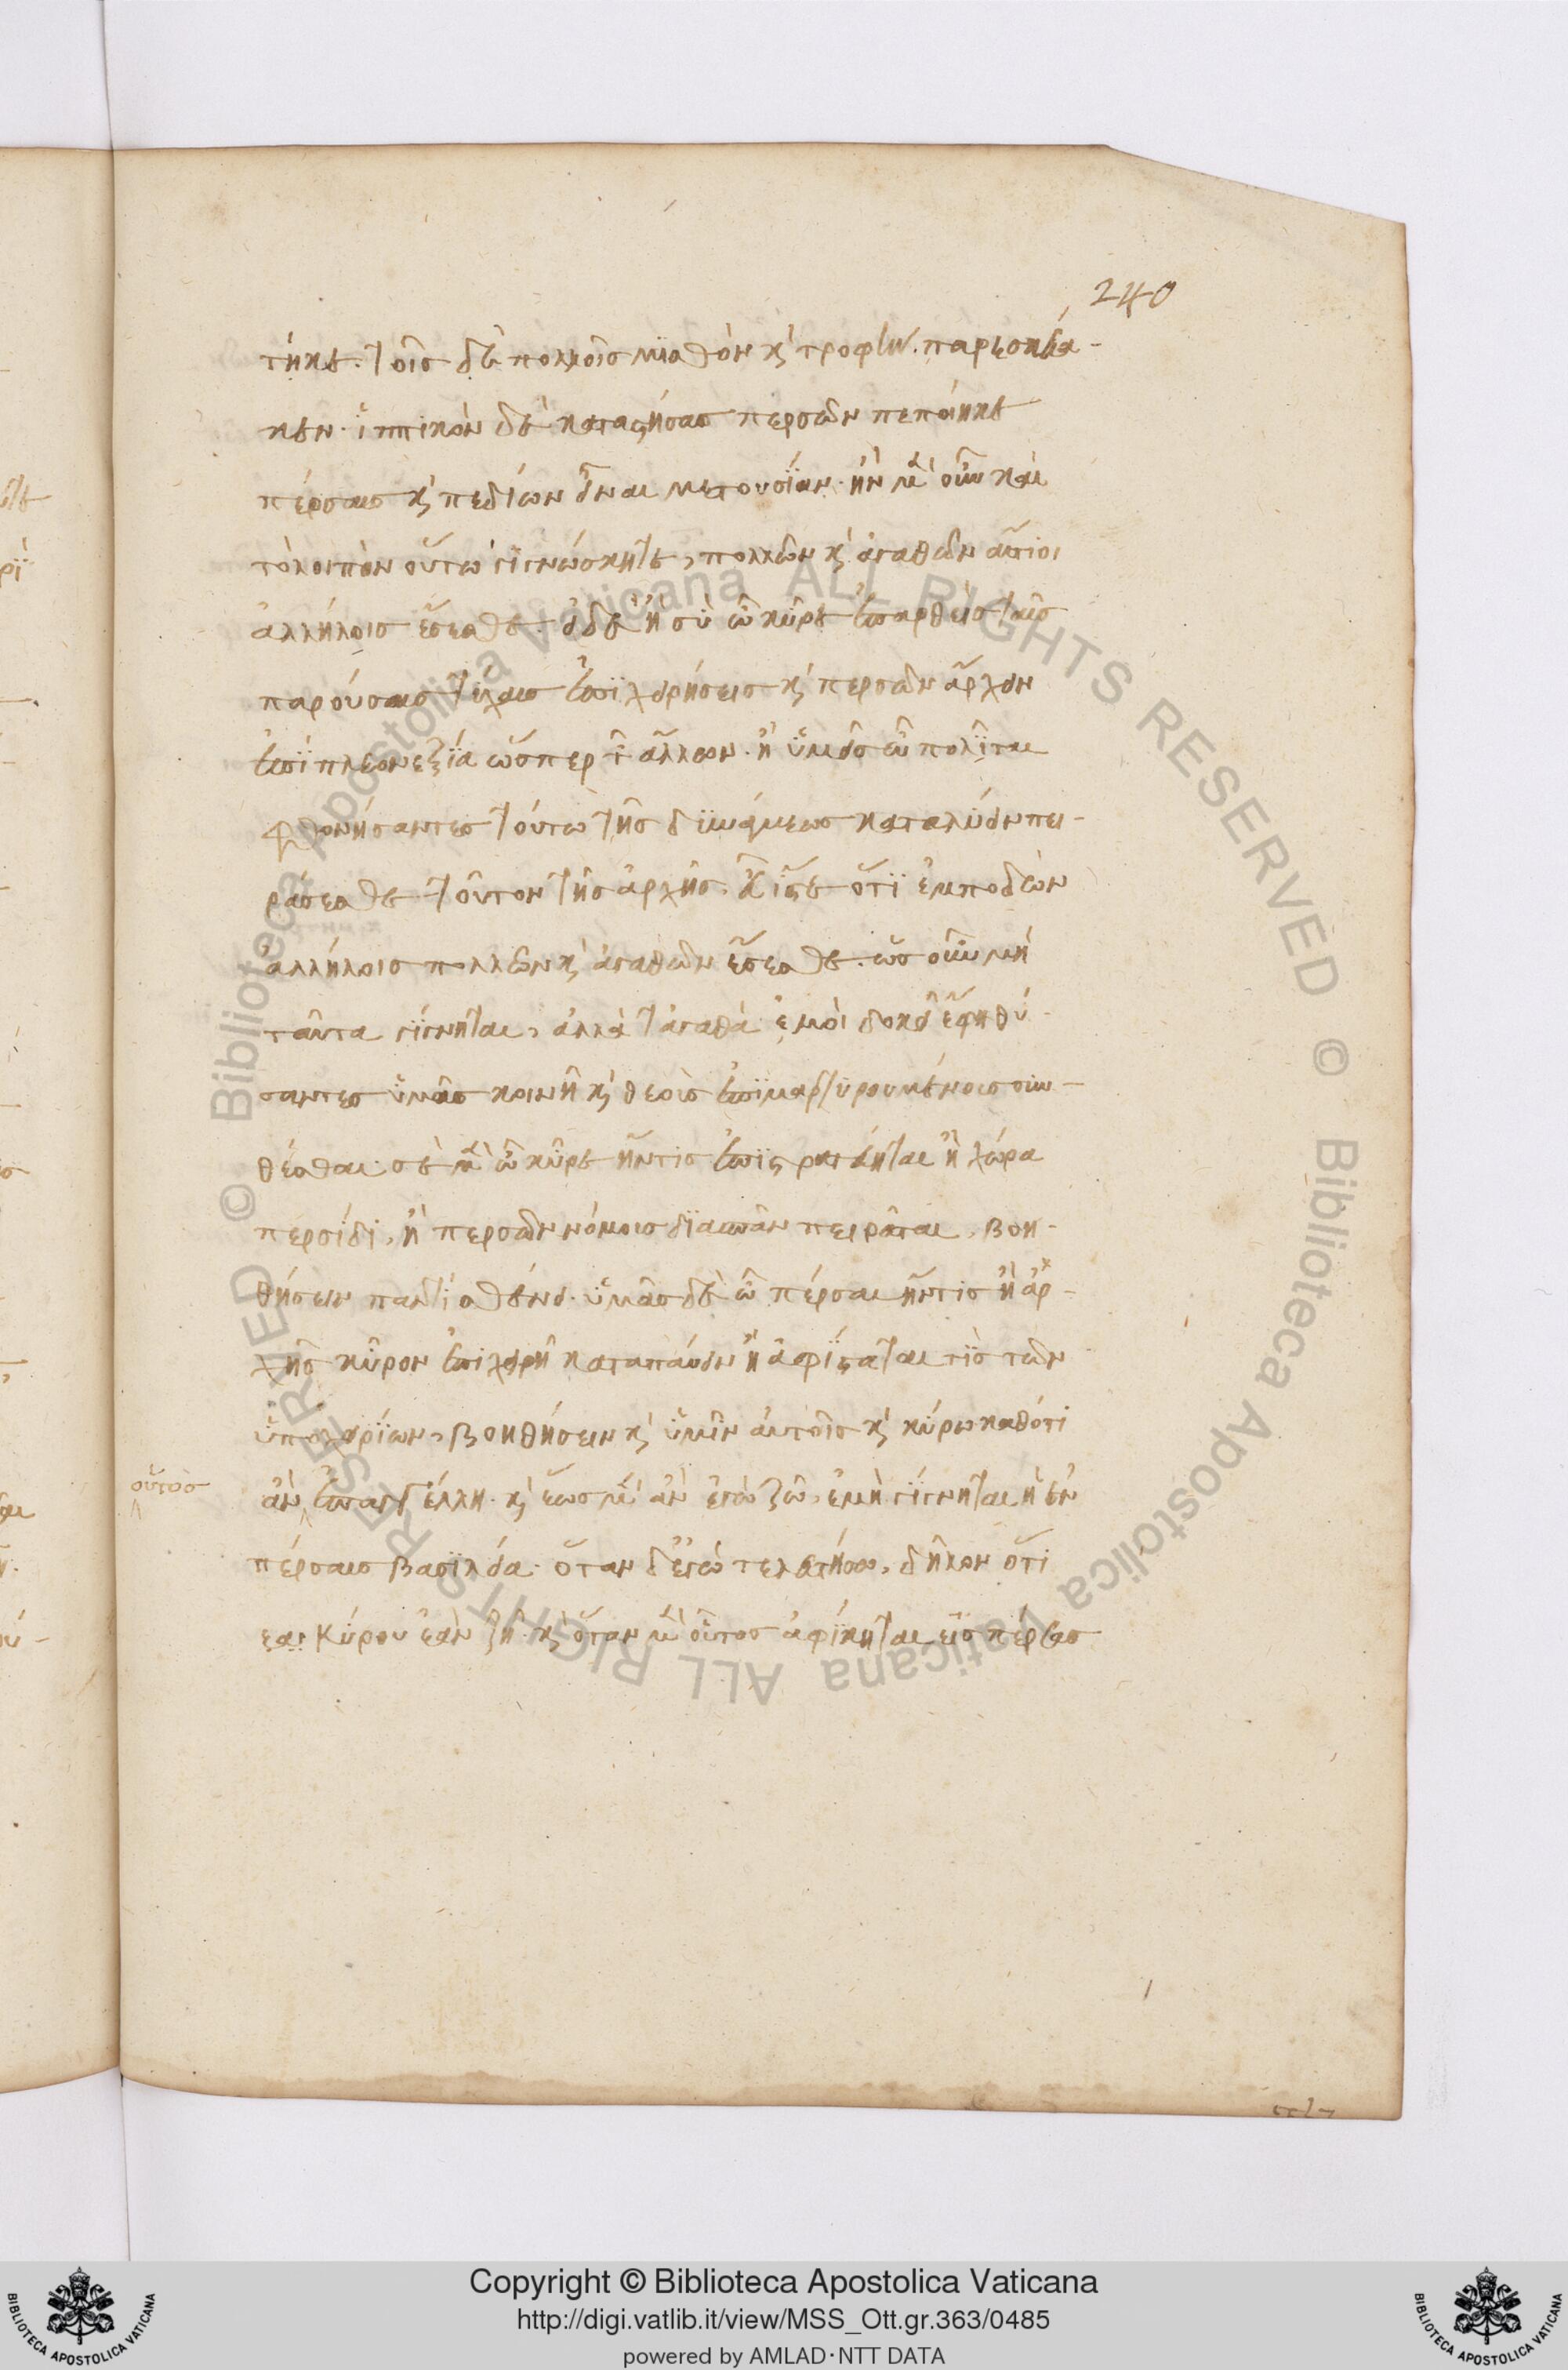 240
τηκε. τοῖς δὲ πολλοῖς μϊσθὸν κ̀ τροφὴν. παρεσκεύα-
κεν. ἱππικὸν δὲ καταστήσας περσῶν πεποίηκε
πέρσαις κ̀ πεδίων εἶναι μετουσίαν. ἢν μὲν οὖν καὶ
τολοιπὸν οὕτω γϊγνώσκητε, πολλῶν κ̀ ἀγαθῶν αἴτιοι
ἀλλήλοις ἔσεσθε. εἰ δὲ ἢ σὺ ὦ κῦρε ἐπαρθεὶς ταῖς
παρούσαις τύχαις ἐπϊχειρήσεις κ̀ περσῶν ἄρχειν
ἐπὶ πλεονεξία ὥσπερ τῶν ἄλλων. ἢ ὑμεῖς ὦ πολῖται
φθονήσαντες τούτω τῆς δϋνάμεως καταλύειν πει-
ράσεσθε τοῦτον τῆς ἀρχῆς. εὖ ἴστε ὅτϊ ἐμποδὼν
ἀλλήλοις πολλῶν κ̀ ἀγαθῶν ἔσεσθε. ὡς οὖν μὴ
ταῦτα γίγνηται, ἀλλὰ τἀγαθὰ ἐμοὶ δοκεῖ ἔφη θύ-
σαντες ὑμᾶς κοινῆ κ̀ θεοὺς ἐπϊμαρτϋρουμένοις συν-
θέσθαι. σὲ μὲν ὦ κῦρε ἤντις ἐπϊστρατεύηται ἢ χώρα
περσίδι, ἢ περσῶν νόμοις δϊασπᾶν πειρᾶται, βοη-
θήσειν παντὶ σθένει. ὑμᾶς δὲ ὦ πέρσαι ἤντις ἢ ἀρ-
χῆς κῦρον ἐπιχειρῆ καταπαύειν ἢ ἀφίσταταί τϊς τῶν
ὑποχειρίων, βοηθήσειν κ̀ ὑμῖν αὐτοῖς κ̀ κύρω καθότι
οὗτος
ἂν ἐπαγγέλλη. κ̀ ἕως μὲν ἂν ἐγὼ ζῶ, ἐμὴ γίγνηται ἡ ἐν
πέρσαις βασϊλεία. ὅταν δ' ἐγὼ τελευτήσω, δῆλον ὅτι
εσ: Κύρου ἐὰν ζῆ. κ̀ ὅταν μὲν οὗτος ἀφίκηται εἰς πέρσας
Copyright © Biblioteca Apostolica Vaticana
http://digi.vatlib.it/view/MSS_Ott.gr.363/0485
powered by AMLAD·NTT DATA
© Biblioteca Apostolica Vaticana ALL RIGHTS RESERVED © Biblioteca Apostolica Vaticana ALL RIGHTS RESERVED